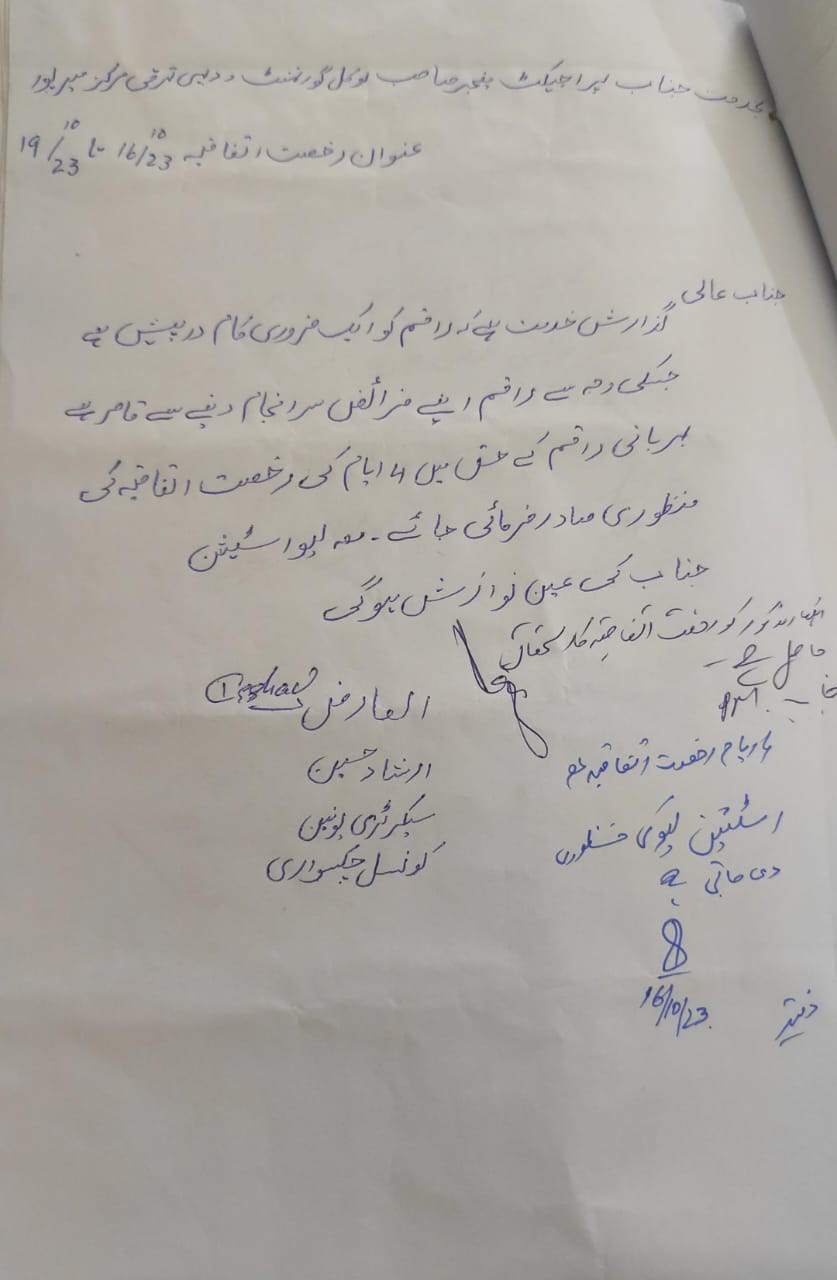 بخدمت جناب پراجیکٹ منیجر صاحب لوکل گورنمنٹ و دیہی ترقی مرکز میرپور
عنوان رخصت اتفاقیہ 16/10/23 تا 19/10/23
جناب عالی
گذارش خدمت ہے کہ راقم کو ایک ضروری کام درپیش ہے
جسکی وجہ سے راقم اپنے فرائض سرانجام دینے سے قاصر ہے
مہربانی راقم کے حق میں 4 ایام کی رخصت اتفاقیہ کی
منظوری صادر فرمائی جائے۔ معہ لیو اسٹیشن
جناب کی عین نوازش ہوگی
العارض
ارشاد حسین
سیکرٹری یونین
کونسل چکسواری
کو رخصت اتفاقیہ کا استحقاق
حاصل ہے
4 ایام رخصت اتفاقیہ معہ
اسٹیشن لیو کی منظوری
دی جاتی ہے
16/10/23
دفتر